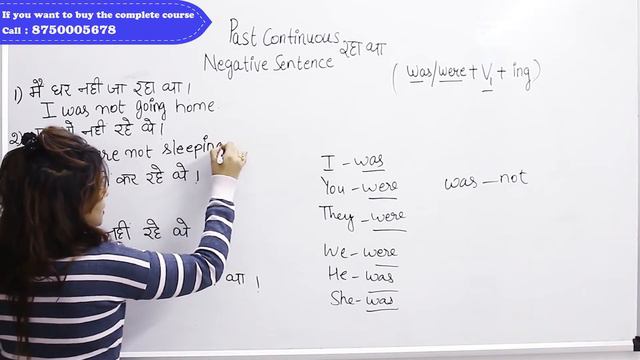 If you want to buy the complete course
Call : 8750005678
Past Continuous रहा था
Negative Sentence
(was/were + V1 + ing)
1) मैं घर नहीं जा रहा था।
I was not going home
2) नहीं रहे थे।
not sleeping
कर रहे थे।
नहीं रहे थे
था।
I - was
You - were
They - were
We - were
He - was
She - was
was - not